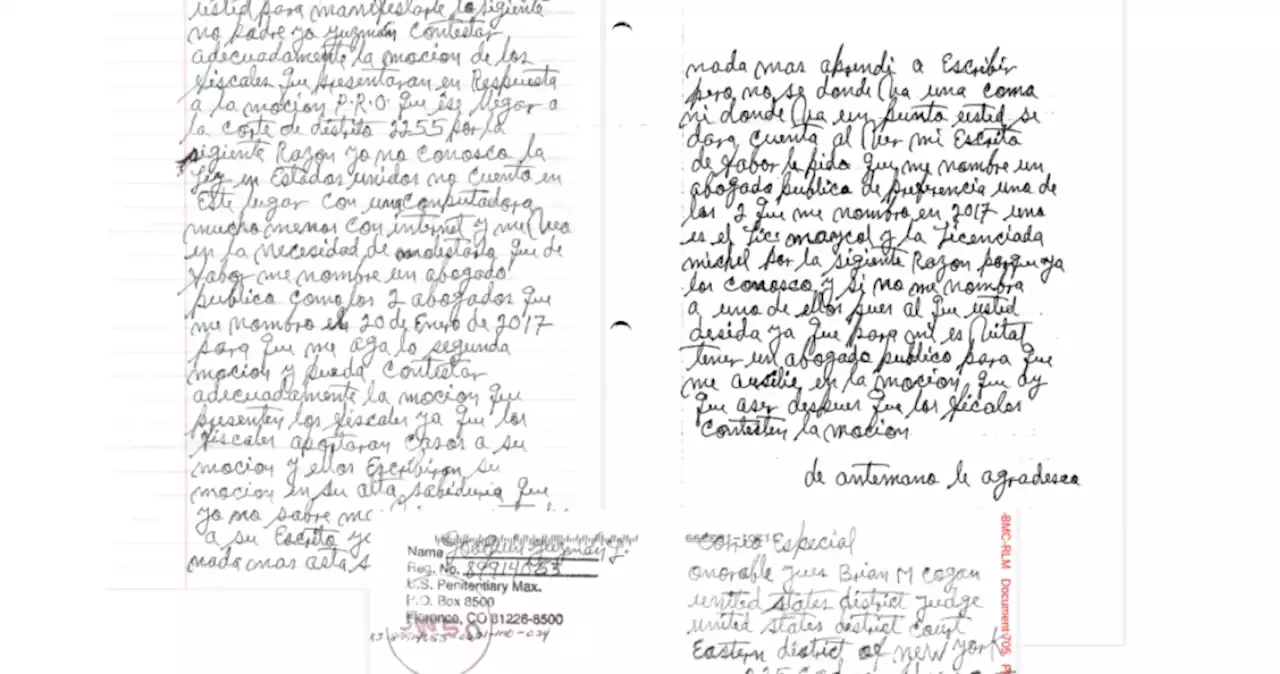 usted para manifestarle lo sigiente
no podre yo guzmán contestar
adecuadamente la mocion de los
fiscales que presentaran en Respuesta
a la mocion P.R.O. que ise llegar a
la corte de distrito 2255 por la
sigiente Razon yo no conosco la
ley en Estados unidos no cuento en
Este lugar con una computadora
mucho menos con internet y me veo
en la necesidad de molestarla que de
fabor me nombre un abogado
publico como los 2 abogados que
me nombro el 20 de Enero de 2017
para que me aga la segunda
mocion y pueda contestar
adecuadamente la mocion que
presenten los fiscales ya que los
fiscales aportaran casos a su
mocion y ellos Escribiron su
mocion en su alta sabiduria que
yo no sabre
a su Escrito yo
nada mas asta
nada mas aprendi a Escribir
pero no se donde va una coma
ni donde va un punto usted se
dara cuenta al ver mi Escrito
de fabor le pido que me nombre un
abogado publico de preferencia uno de
los 2 que me nombro en 2017 uno
es el Lic maycol y la Licenciada
michel por la sigiente Razon porque ya
los conosco y si no me nombra
a uno de ellos pues al que usted
desida ya que para mi es vital
tener un abogado publico para que
me auxilie en la mocion que ay
que aser despues que los fiscales
contesten la mocion
de antemano le agradesco
Name Joaquin Guzman L.
Reg. No. 89914053
U.S. Penitentiary Max.
P.O. Box 8500
Florence, CO 81226-8500
Especial
onorable Jues Brian M Cogan
united states district judge
united states district court
Eastern district of new York
225
-BMC-RLM Document 705